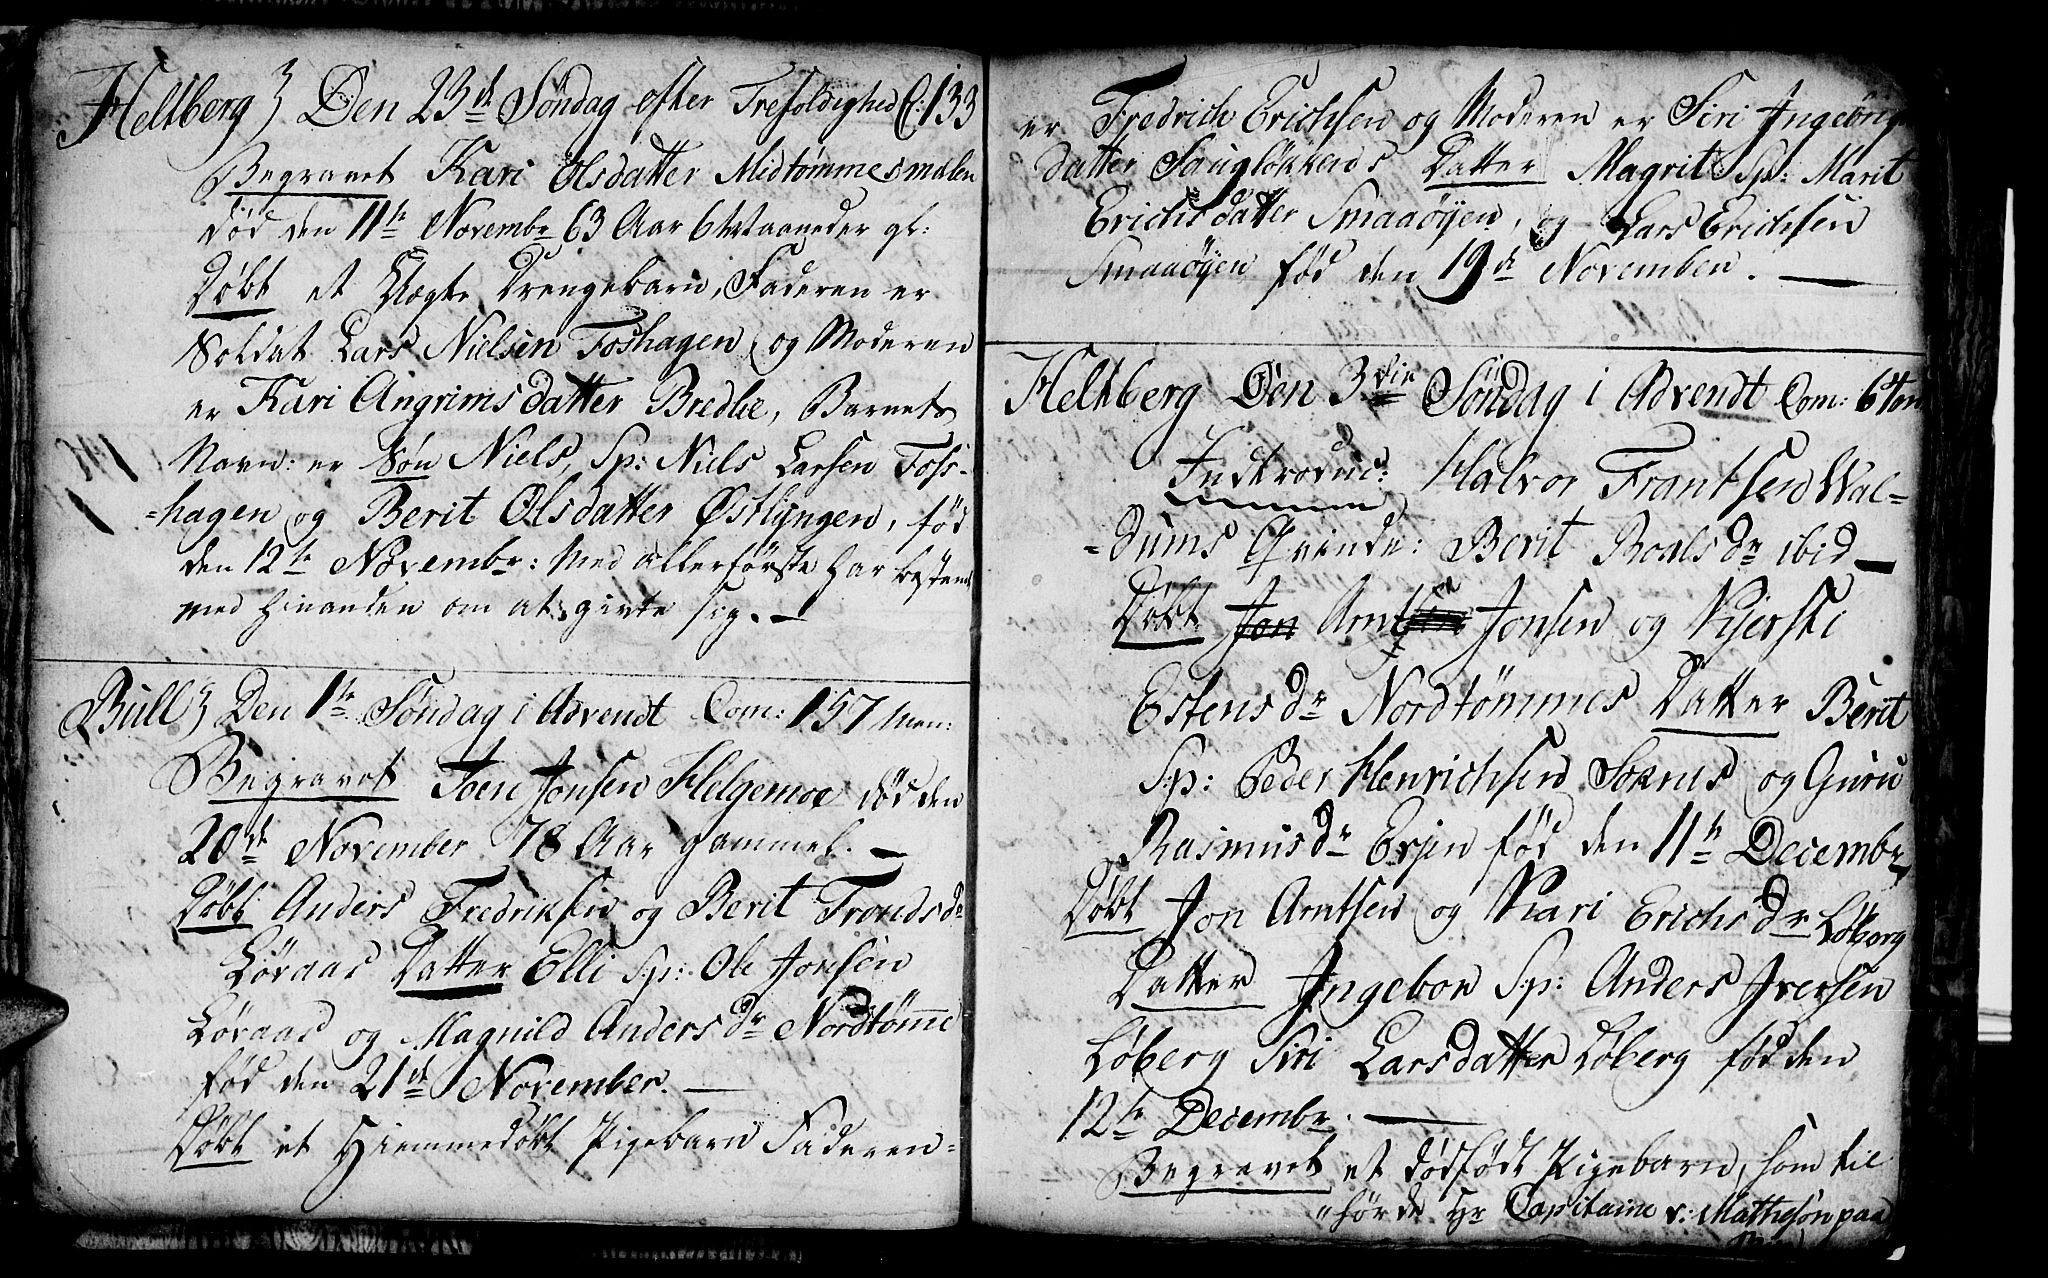 Heltberg Den 23de Søndag efter Trefoldighed C: 133
Begravet Kari Olsdatter Midtømmesmalen
død den 11te Novembr 63 Aar 6 Maaneder gl:
Døbt et Uægte Drengebarn, Faderen er
Soldat Lars Nielsen Foshagen, og Moderen
er Kari Angrimsdatter Bredlie, Barnets
Navn: er Søn Niels, Sp: Niels Larsen Foss-
-hagen og Berit Olsdatter Østlyngen, fød
den 12te Novembr: Med allerførste har bestemt
med hinanden om at givte sig. —
Bull Den 1te Søndag i Advendt Com: 157 Men:
Begravet Joen Jonsen Helgemoe død den
20de November 78 Aar gammel. —
Døbt Anders Fredriksen og Berit Tronds dr
Løvaas Datter Elli Sp: Ole Jonsen
Løvaas og Magnild Anders dr Nordtømme
fød den 21de November. —
Døbt et Hiemmedøbt Pigebarn Faderen-
er Fredrich Erichsen og Moderen er Siri Ingebrigts
datter Haugløkkens Datter Magrit: Sp: Marit
Erichsdatter Smaaøyen, og Lars Erichsen
Smaaøyen fød den 19de November. —
Heltberg Den 3die Søndag i Advendt Com: 6ten
Indtroduc: Halvor Frantsen Wal-
-dums Qvinde: Berit Roalsdr ibid —
Døbt Jon Arntsen Jonsen og Kjersti
Estens dr Nordtømmes Datter Berit
Sp: Peder Henrichsen Soknes og Guru
Rasmus dr Evjen fød den 11te Decembr
Døbt Jon Arntsen og Kari Erichs dr Løberg
Datter Ingebor Sp: Anders Iversen
Løberg Siri Larsdatter Løberg fød den
12te Decembr. —
Begravet et dødfødt Pigebarn, som til
"hørde Hr Capitaine v: Mathesøn paa